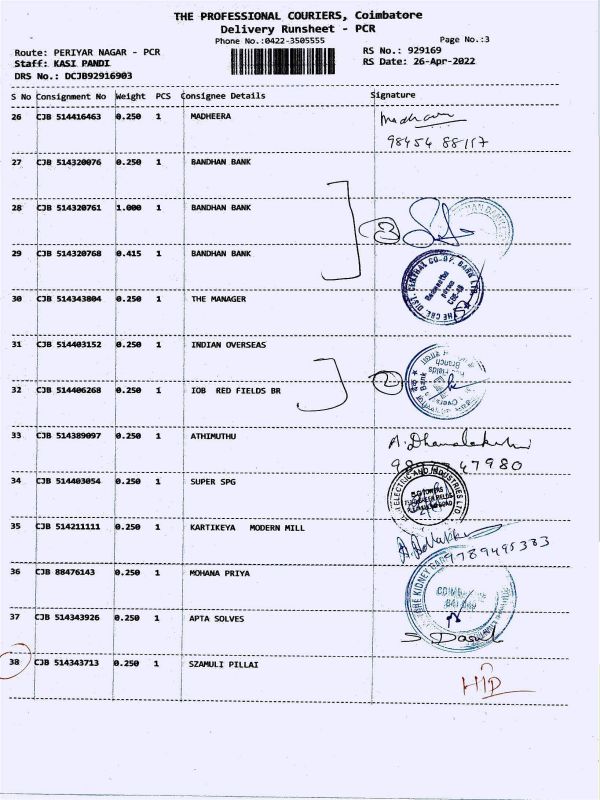 THE PROFESSIONAL COURIERS, Coimbatore
Delivery Runsheet - PCR
Phone No.:0422-3505555
Page No.:3
Route: PERIYAR NAGAR - PCR
RS No.: 929169
Staff: KASI PANDI
RS Date: 26-Apr-2022
DRS No.: DCJB92916903
S No Consignment No Weight PCS Consignee Details Signature
26 CJB 514416463 0.250 1 MADHEERA
98454 88117
27 CJB 514320076 0.250 1 BANDHAN BANK
28 CJB 514320761 1.000 1 BANDHAN BANK
29 CJB 514320768 0.415 1 BANDHAN BANK
THE CBE. DIST. CENTRAL CO-OP. BANK LTD.
30 CJB 514343804 0.250 1 THE MANAGER
31 CJB 514403152 0.250 1 INDIAN OVERSEAS
2
32 CJB 514406268 0.250 1 IOB RED FIELDS BR
33 CJB 514389097 0.250 1 ATHIMUTHU
47980
34 CJB 514403054 0.250 1 SUPER SPG
ELECTRIC AND INDUSTRIES LTD
35 CJB 514211111 0.250 1 KARTIKEYA MODERN MILL
9789495383
36 CJB 88476143 0.250 1 MOHANA PRIYA
KIDNEY
37 CJB 514343926 0.250 1 APTA SOLVES
38 CJB 514343713 0.250 1 SZAMULI PILLAI